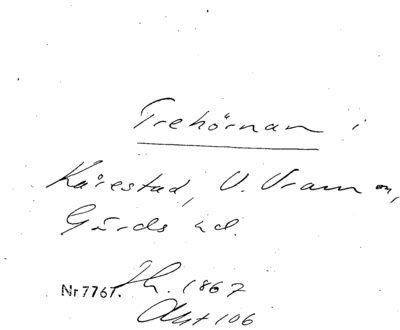 Trehörnan i
Kårestad, V. Vram sn,
Gärds hd.
Nr 7767. Jh. 1867
Akt 106